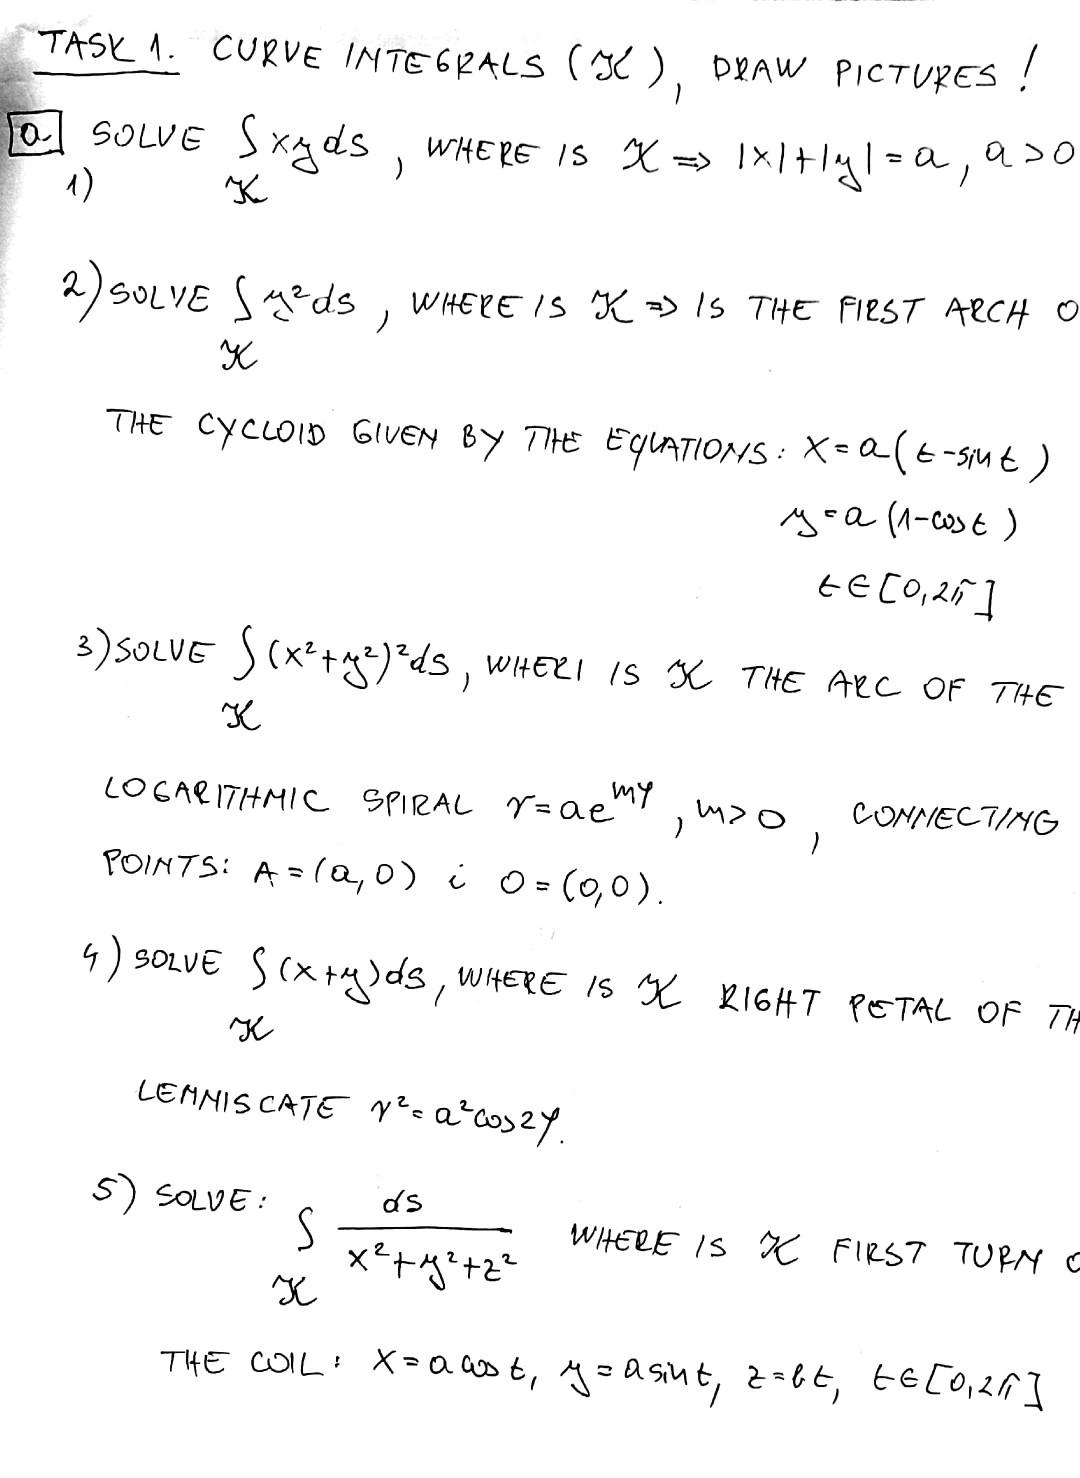 TASK 1. CURVE INTEGRALS (K), DRAW PICTURES!
a SOLVE ∫ xy ds, WHERE IS K ⇒ |x|+|y|=a, a>0
1) K
2) SOLVE ∫ y² ds, WHERE IS K ⇒ IS THE FIRST ARCH O
K
THE CYCLOID GIVEN BY THE EQUATIONS: x=a(t-sin t)
y=a(1-cos t)
t∈[0,2π]
3) SOLVE ∫ (x²+y²)² ds, WHERI IS K THE ARC OF THE
K
LOGARITHMIC SPIRAL r=ae^{mφ}, m>0, CONNECTING
POINTS: A=(a,0) i O=(0,0).
4) SOLVE ∫ (x+y) ds, WHERE IS K RIGHT PETAL OF TH
K
LEMNISCATE r²=a²cos2φ.
5) SOLVE: ∫ ds / x²+y²+z² WHERE IS K FIRST TURN O
K
THE COIL: x=a cos t, y=a sin t, z=bt, t∈[0,2π]